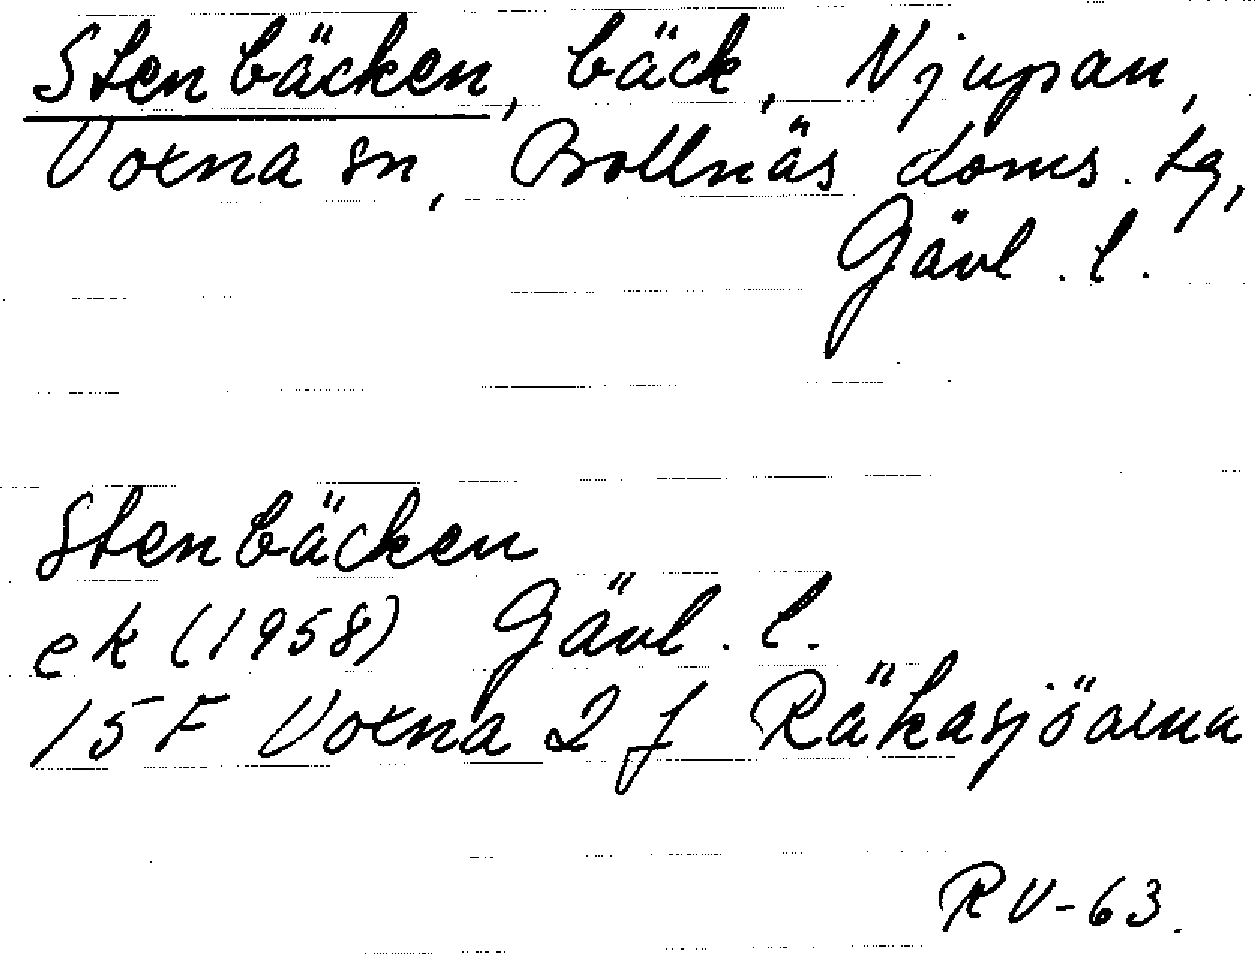 Stenbäcken, bäck, Njupån,
Voxna sn, Bollnäs doms. tg,
Gävl. l.
Stenbäcken
ek (1958) Gävl. l.
15F Voxna 2 f Räkasjöarna
RV-63.